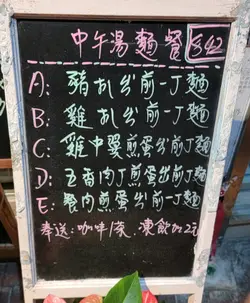 中午湯麵餐 $42
A: 豬扒公煎一丁麵
B: 雞扒公煎一丁麵
C: 雞中翼煎蛋出前一丁麵
D: 五香肉丁煎蛋出前丁麵
E: 餐肉煎蛋出前一丁麵
奉送:咖啡/茶 凍飲加2元